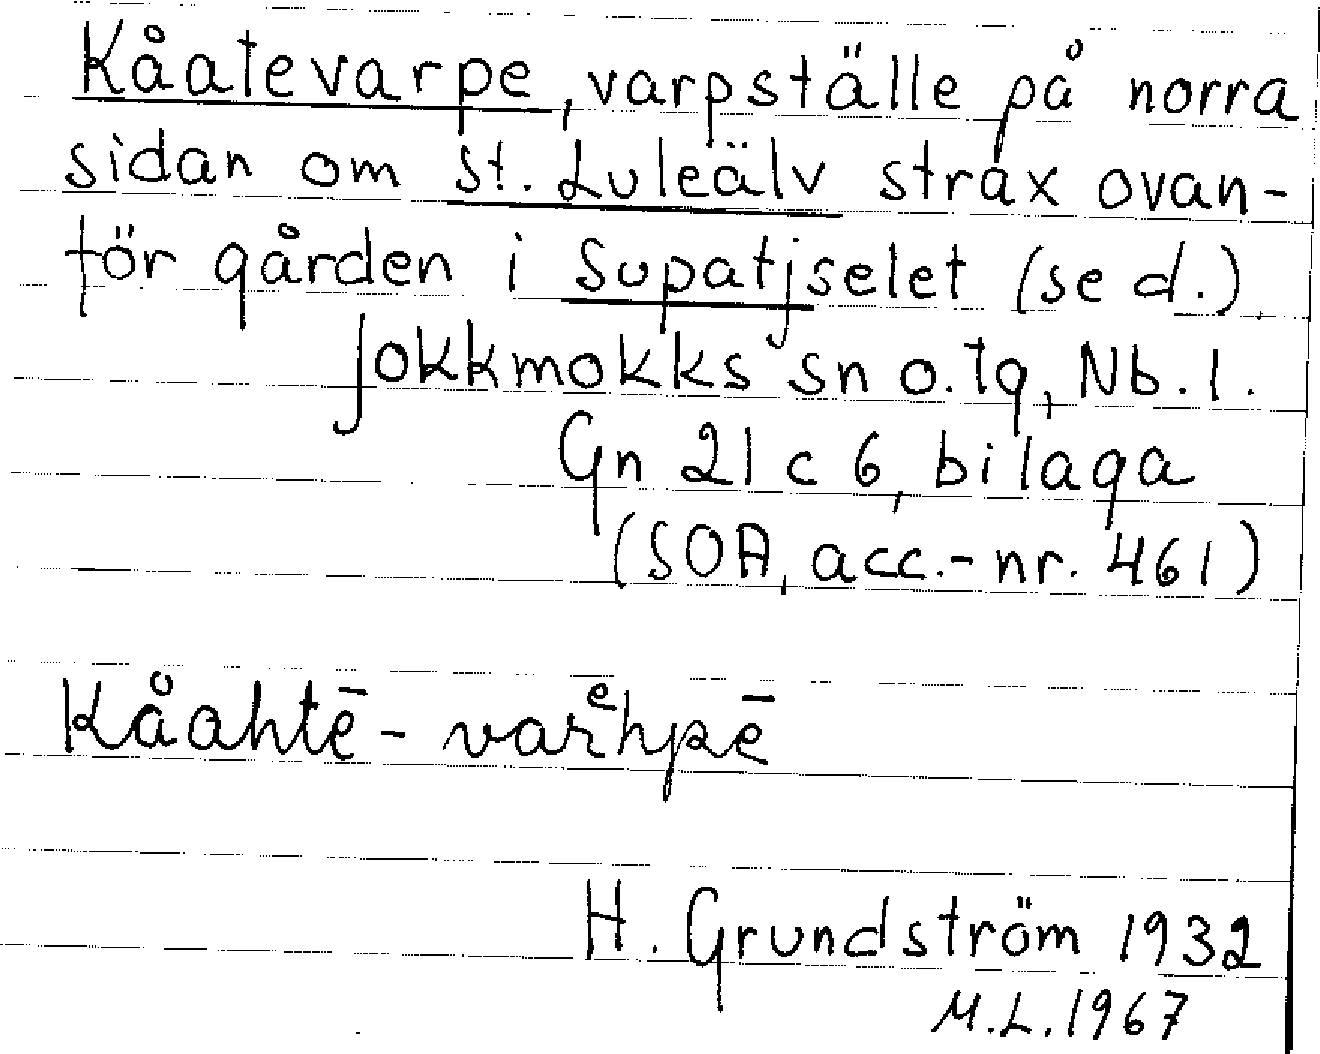 Kåatevarpe, varpställe på norra
sidan om St. Luleälv strax ovan-
för gården i Supatjselet (se d.),
Jokkmokks sn o. tg, Nb. l.
Gn 21 c 6, bilaga
(SOA, acc.-nr. 461)
Kåahtē - varᵉhpē
H. Grundström 1932
M.L. 1967